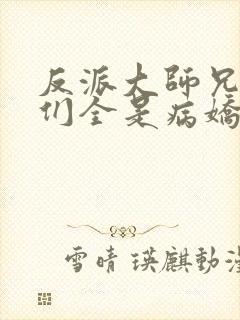 反派大師兄
们全是病嬌
雪晴 瑛麒動漫